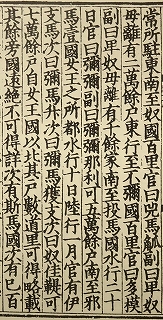 常所駐東南至奴國百里官曰兕馬觚副曰卑奴
母離有二萬餘戶東行至不彌國百里官曰多模
副曰卑奴母離有千餘家南至投馬國水行二十
日官曰彌彌副曰彌彌那利可五萬餘戶南至邪
馬壹國女王之所都水行十日陸行一月官有伊
支馬次曰彌馬升次曰彌馬獲支次曰奴佳鞮可
七萬餘戶自女王國以北其戶數道里可得略載
其餘旁國遠絕不可得詳次有斯馬國次有已百